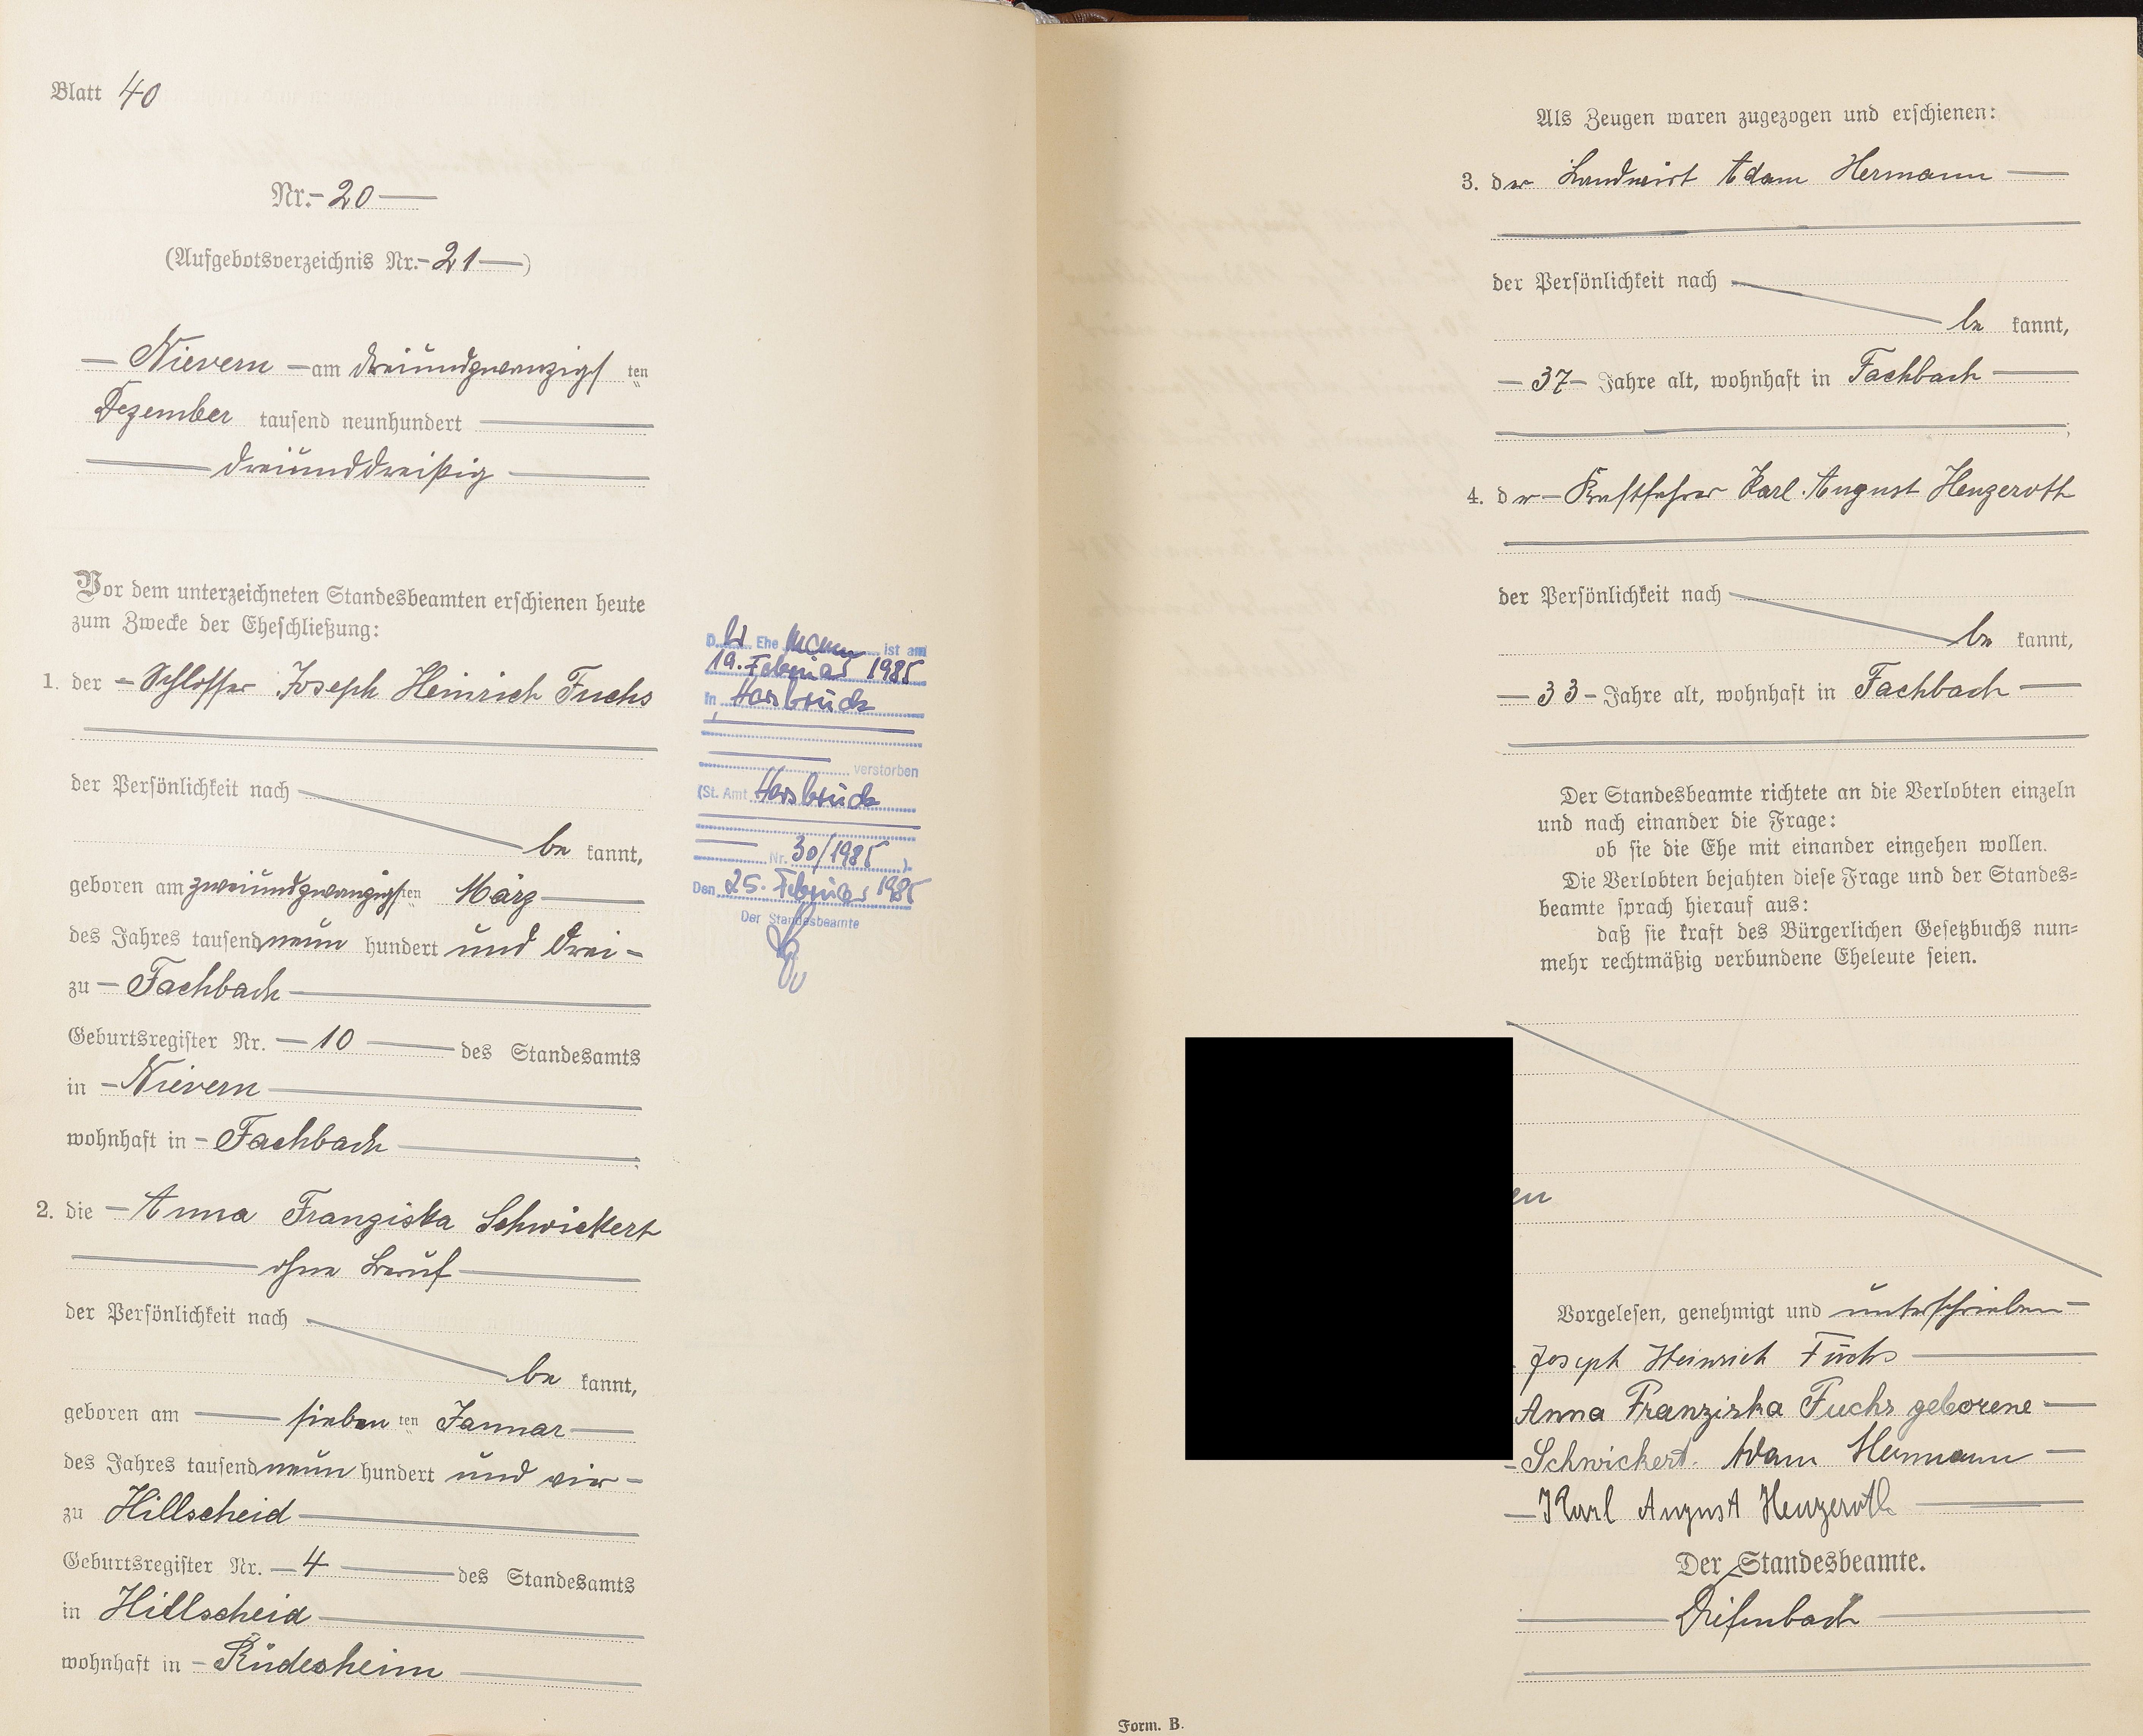 Blatt 40
Nr. 20
(Aufgebotsverzeichnis Nr. 21)
Nievern am dreiundzwanzigsten
Dezember tausend neunhundert
dreiunddreißig
Vor dem unterzeichneten Standesbeamten erschienen heute
zum Zwecke der Eheschließung:
1. der Schlosser Joseph Heinrich Fuchs
der Persönlichkeit nach
be kannt,
geboren am zweiundzwanzigsten März
des Jahres tausend neun hundert und drei
zu Fachbach
Geburtsregister Nr. 10 des Standesamts
in Nievern
wohnhaft in Fachbach
2. die Anna Franziska Schwickert
ohne Beruf
der Persönlichkeit nach
be kannt,
geboren am siebenten Januar
des Jahres tausend neun hundert und vier
zu Hillscheid
Geburtsregister Nr. 4 des Standesamts
in Hillscheid
wohnhaft in Rüdesheim
D. er Ehe mann ist am
19. Februar 1985
in
verstorben
(St. Amt
Nr. 30/1985 ).
Den 25. Februar 1985
Der Standesbeamte
Als Zeugen waren zugezogen und erschienen:
3. der Landwirt Adam Hermann
der Persönlichkeit nach
be kannt,
37 Jahre alt, wohnhaft in Fachbach
4. der Kraftfahrer Karl August Henzeroth
der Persönlichkeit nach
be kannt,
33 Jahre alt, wohnhaft in Fachbach
Der Standesbeamte richtete an die Verlobten einzeln
und nach einander die Frage:
ob sie die Ehe mit einander eingehen wollen.
Die Verlobten bejahten diese Frage und der Standes=
beamte sprach hierauf aus:
daß sie kraft des Bürgerlichen Gesetzbuchs nun=
mehr rechtmäßig verbundene Eheleute seien.
en
Vorgelesen, genehmigt und unterschrieben
Joseph Heinrich Fuchs
Anna Franziska Fuchs geborene
Schwickert. Adam Hermann
Karl August Henzeroth
Der Standesbeamte.
Form. B.